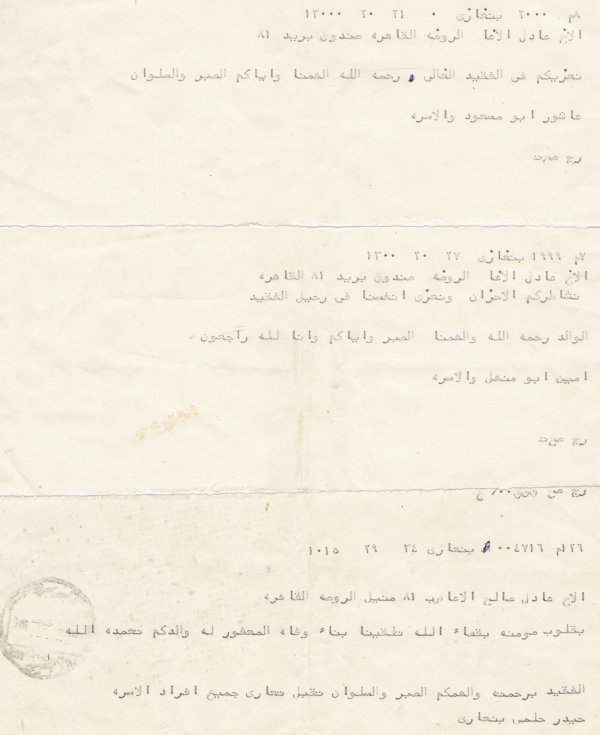 ٨م ٢٠٠٠ بنغازى ٠ ٢١ ٢٠ ١٣٠٠٠
الاخ عادل الاغا الروضه القاهره صندوق بريد ٨١
نعزيكم فى الفقيد الغالى رحمه الله الهمنا واياكم الصبر والسلوان
عاشور ابو مسعود والاسره
رج صت
٧م ١٩٩٩ بنغازى ٢٧ ٢٠ ١٣٠٠
الاخ عادل الاغا الروضه صندوق بريد ٨١ القاهره
نشاطركم الاحزان ونعزى انفسنا فى رحيل الفقيد
الوالد رحمه الله والهمنا الصبر واياكم وانا لله راجعون
امين ابو منهل والاسره
رج صت
رج ص
١٢٦م ٠٠٤٧١٦ بنغازى ٢٤ ٢٩ ١٠١٥
الاخ عادل صالح الاغا ٨١ منيل الروضه القاهره
بقلوب مومنه بقضاء الله تلقينا بناء وفاه المغفور له والدكم تغمده الله
الفقيد برحمته والهمكم الصبر والسلوان تقبل تعازى جميع افراد الاسره
حيدر حلمى بنغازى